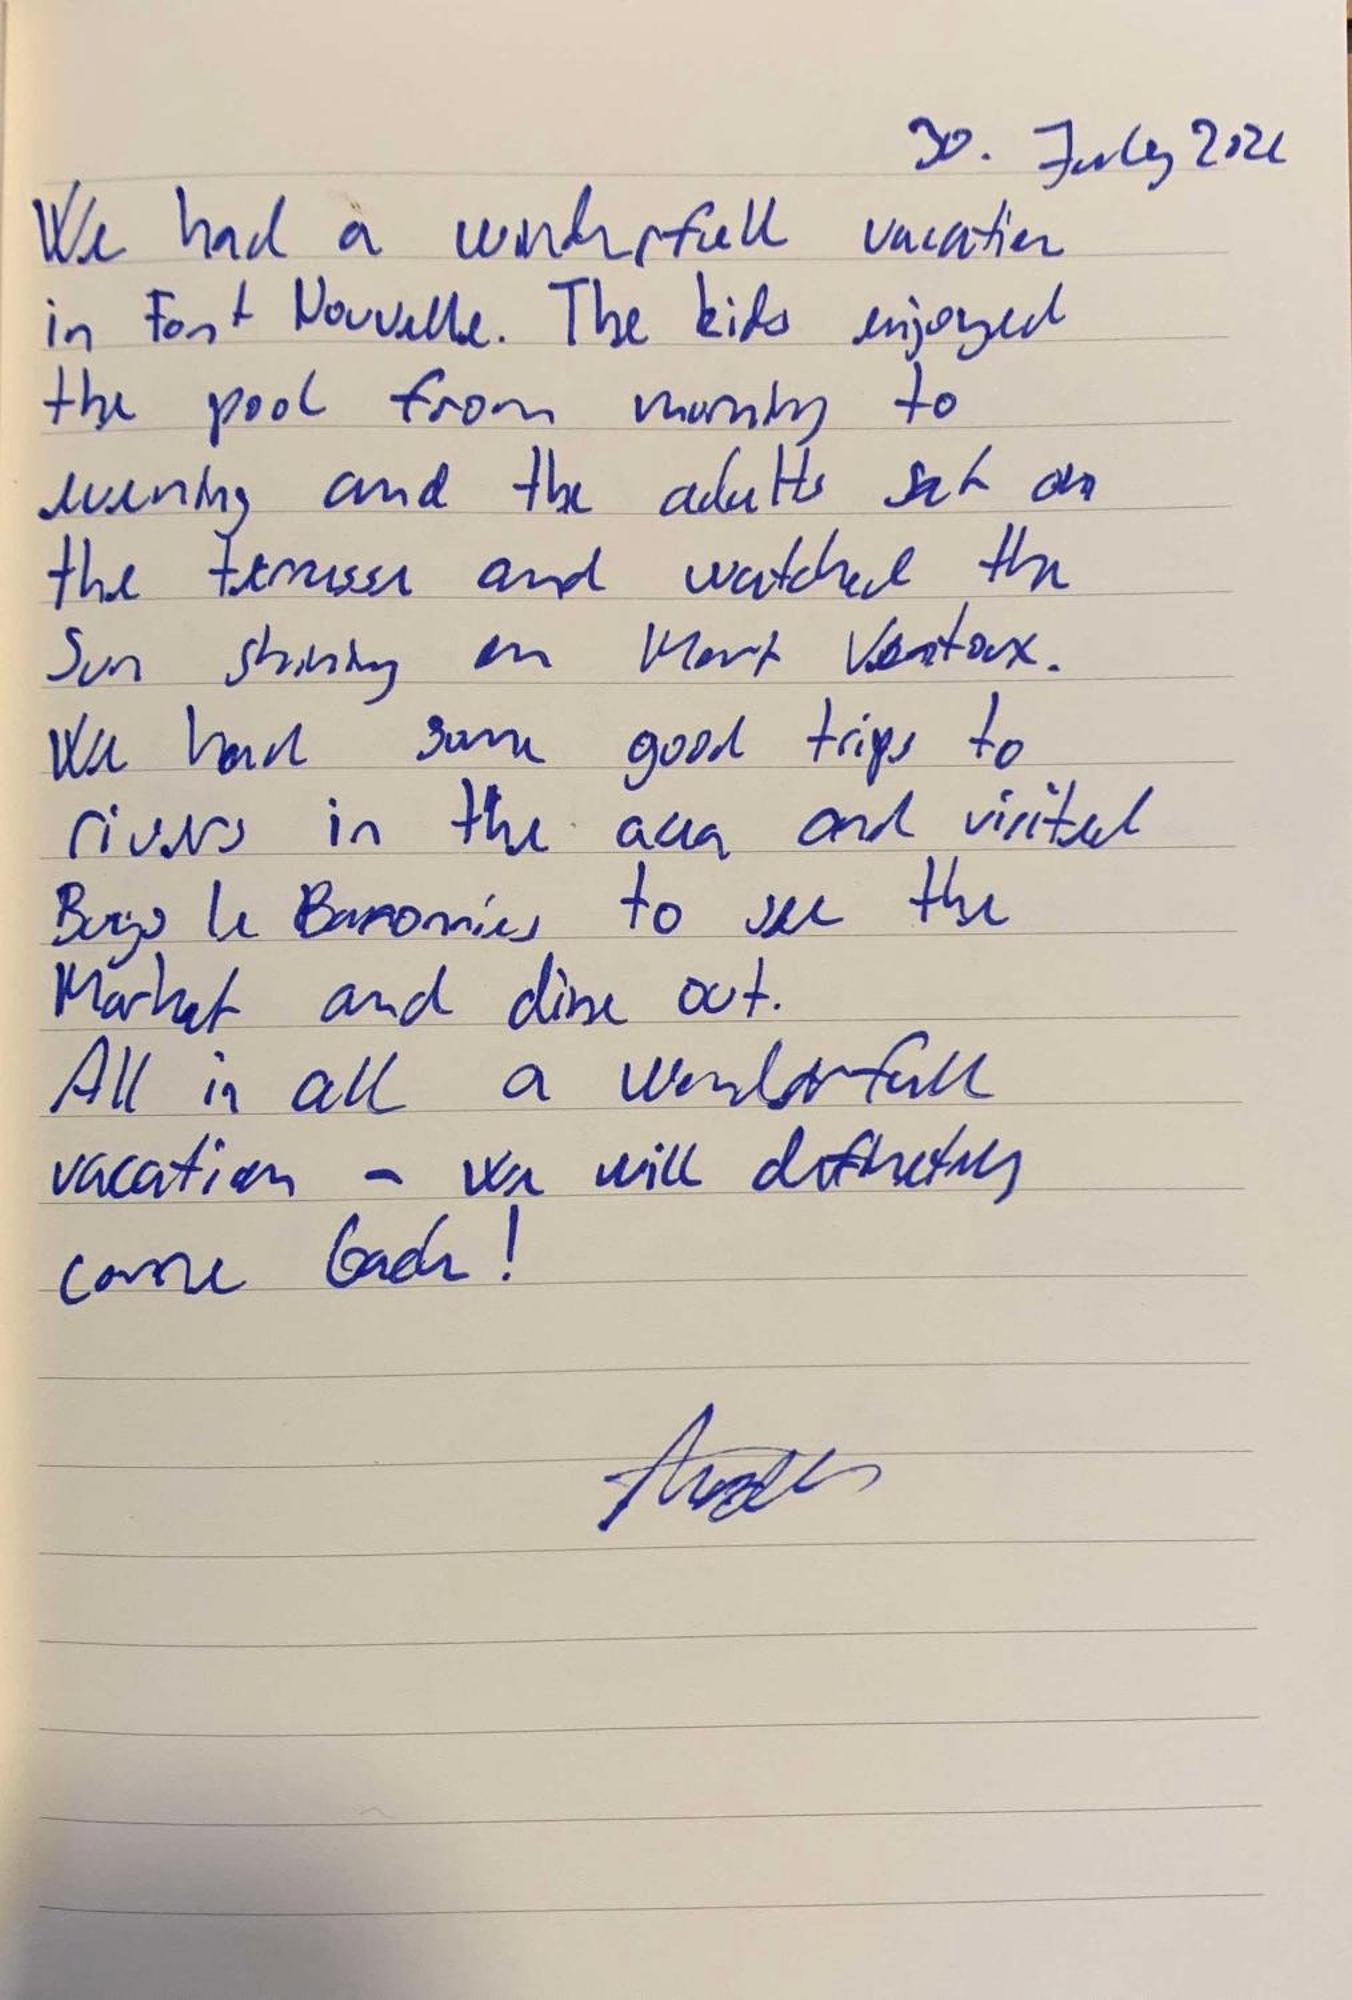 30. July
We had a wonderfull vacation
in Font Nouvelle. The kids enjoyed
the pool from morning to
evening and the adults sat on
the terrasse and watched the
Sun shining on Mont Ventoux.
We had some good trips to
rivers in the area and visited
le Baronnies to see the
Market and dine out.
All in all a wonderfull
vacation - we will
come back!